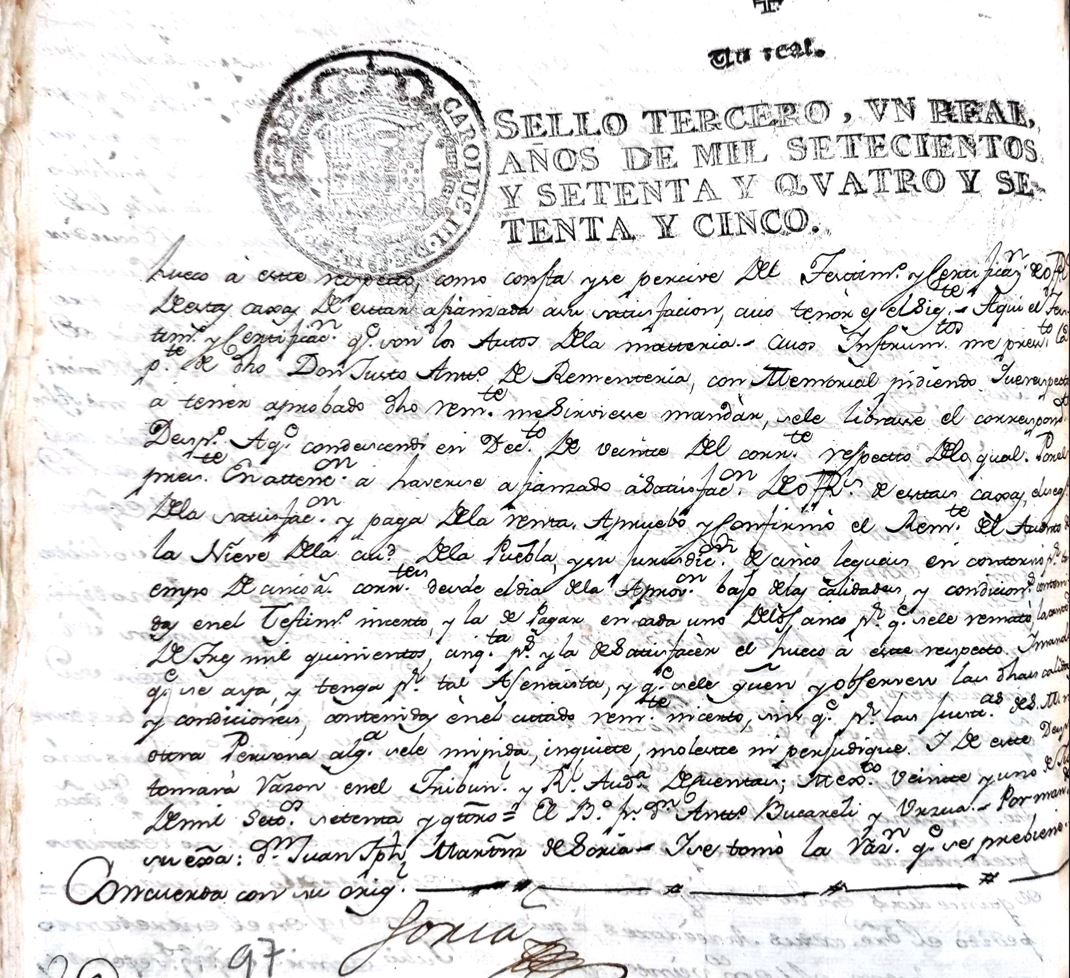 Un real.
CAROLUS III D G HISP REX
SELLO TERCERO, VN REAL,
AÑOS DE MIL SETECIENTOS
Y SETENTA Y QVATRO Y SE-
TENTA Y CINCO.
hueco â este respecto, como consta y se percive del Testim.º y Certificaz.n
de estas caxas de estar afianzada a su satisfacion, cuio tenòr es el sig.te Aqui el Tes-
tim.º y Certificac.n q.e son los Autos de la matteria.- Cuios Instrum.tos me presentó
p.te de dho Don Justo Ant.º de Rementeria, con Memorial pidiendo que respecto
â tener aprobado dho rem.te me sirviesse mandàr, se le librasse el correspond.te
Desp.º A q.e condescendi en Dec.to de veinte del corr.te respecto de lo qual. Por el
pres.te En attenc.on â haverse afianzado â satisfac.on de offi.s de estas caxas, el seg.º
de la satisfac.on y paga de la renta. Apruebo y Confirmo el Rem.te del Assiento de
la Nieve de la ciu.d de la Puebla, y su jurisdic.on de cinco leguas en contorno p.r
empo de cinco a.s corr.tes desde el dia de la Aprov.on bajo de las calidades, y condicion.s
das en el Testim.º incerto, y la de Pagar en cada uno de los cinco p.r q.e se le remató, la cant.d
de tres mil quinientos, cinq.ta p.s y la de satisfacèr el hueco â este respecto. Y mando
q.e se aya, y tenga p.r tal Asentista, y q.e se le guarden y observen las dhas calida
y condiciónes, contenidas en el citado rem.te incerto, sin q.e p.r las Justi.as de S. M. ni
ottra Persona alg.a se le impida, inquiete, moleste ni perjudique. Y de este Desp.º
tomarà Razon en el Tribun.l y R.l Aud.a de Cuentas; Mex.co veintte y uno de
de mil Seto.s setenta y qtro.= El B.º fr. d.n Ant.º Bucareli y Ursua.- Por man.do
su exâ: d.n Juan Jph Martin de Soria- Y se tomò la Raz.n q.e se prebiene.
Concuerda con su orig.l
Soria
97.